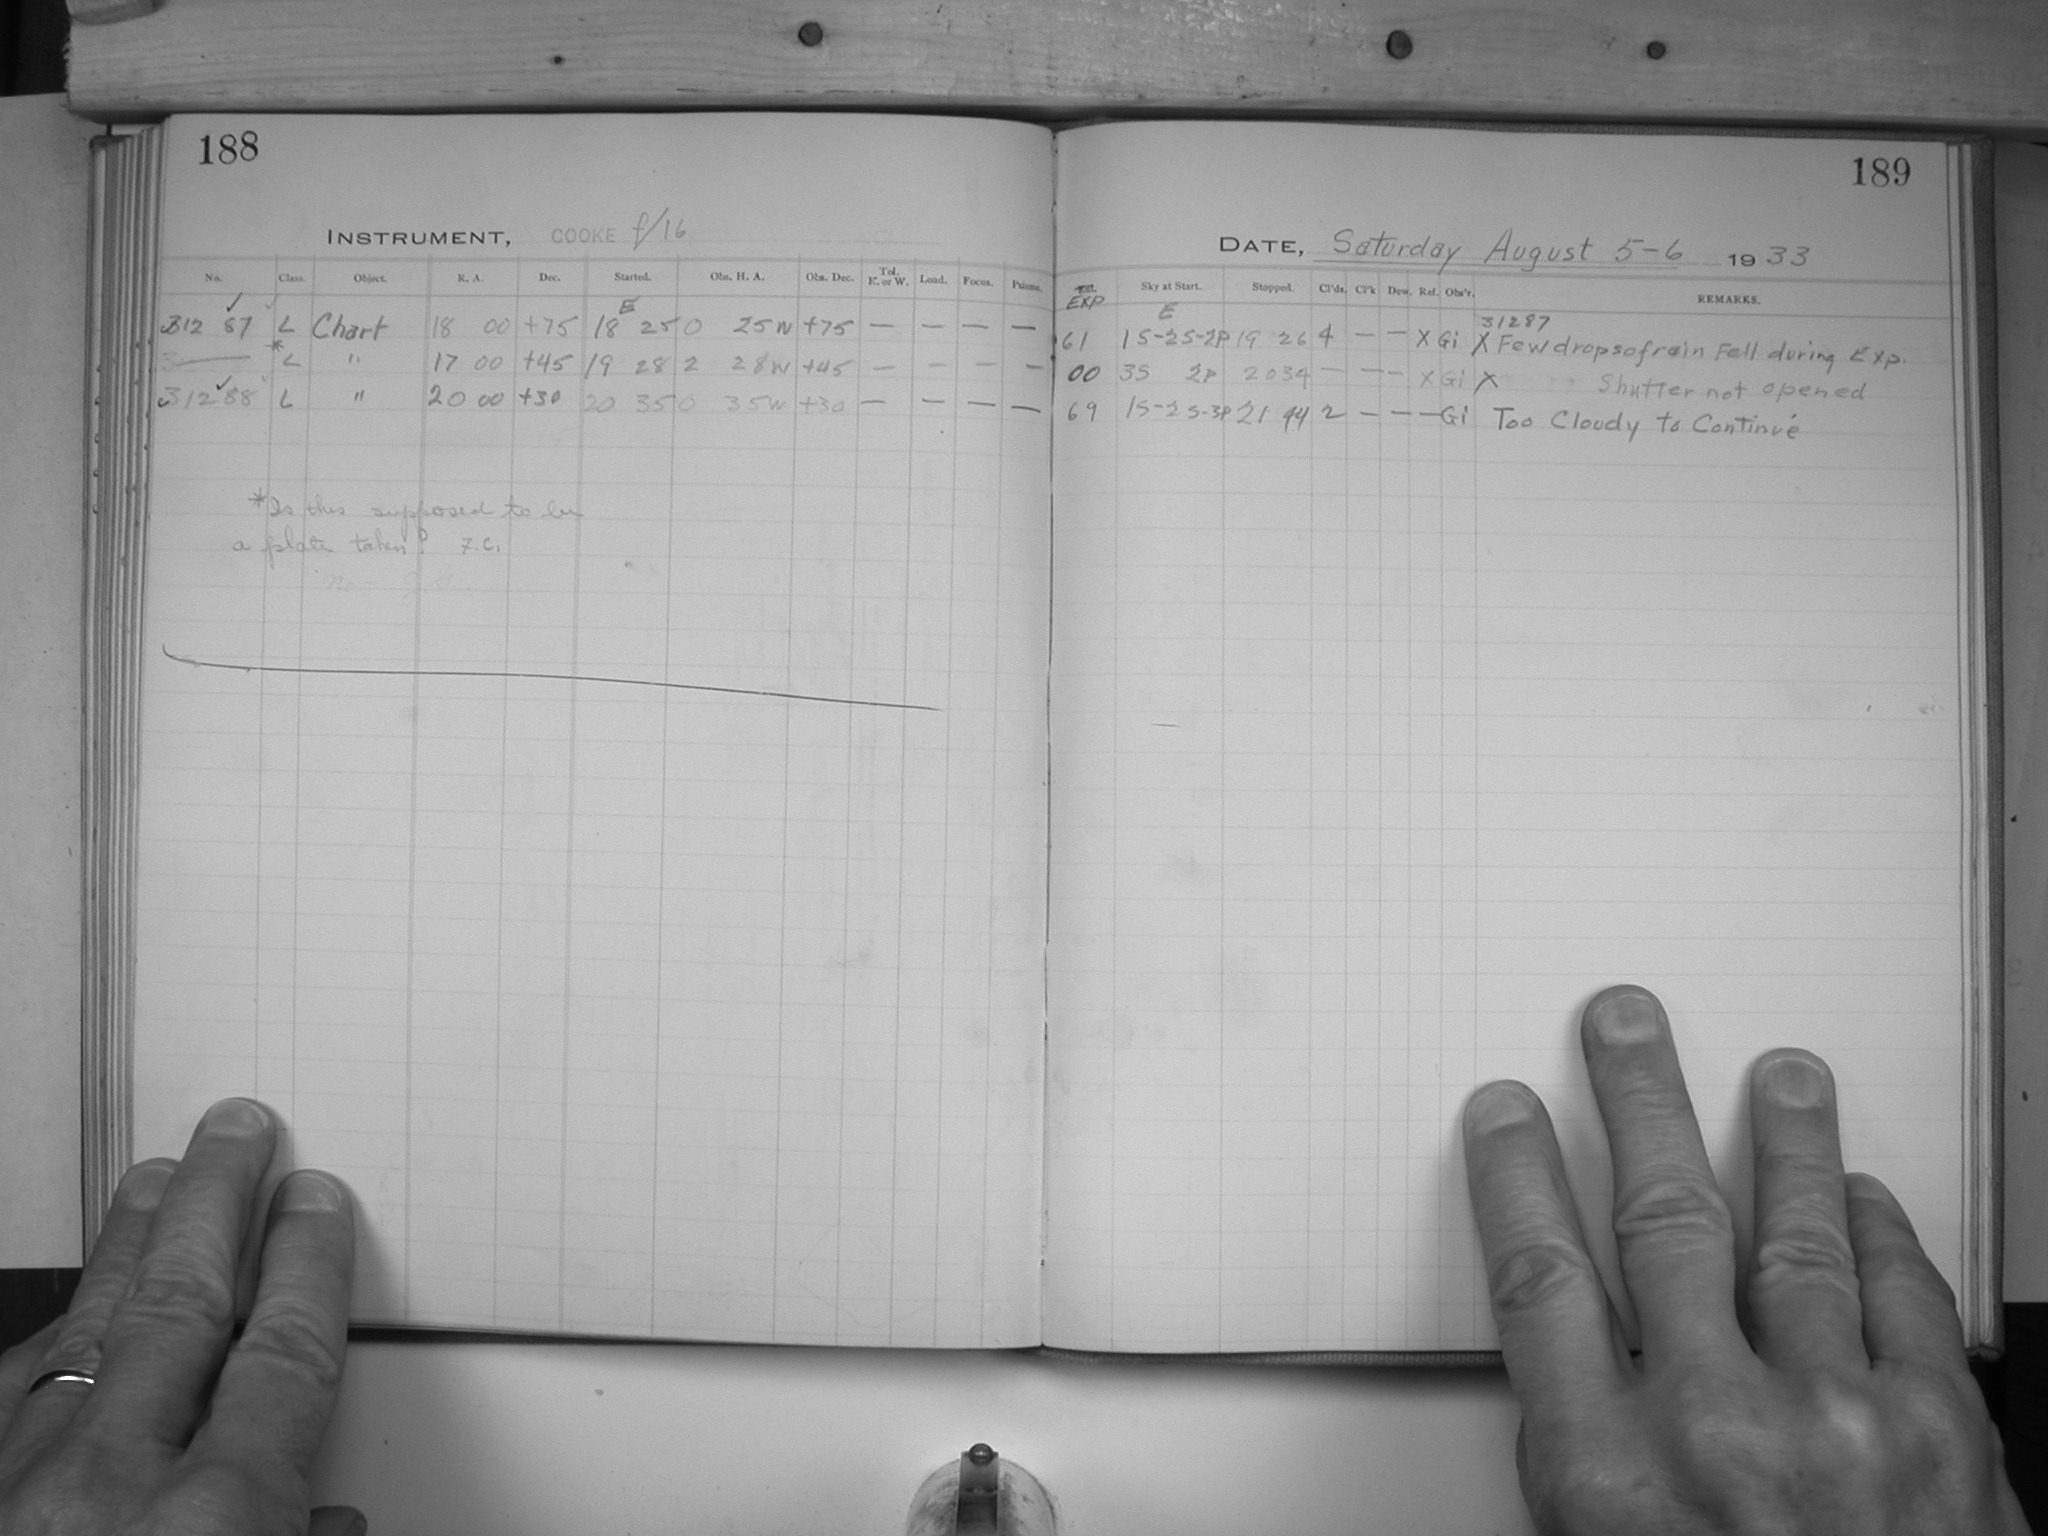 188
INSTRUMENT, COOKE f/16
No. Class. Object. R. A. Dec. Started. Obs. H. A. Obs. Dec. Tel. E. or W. Load. Focus. Prisms.
E
31287 L Chart 18 00 +75 18 25 0 25W +75 — — — —
* L " 17 00 +45 19 28 2 28W +45 — — — —
31288 L " 20 00 +30 20 35 0 35W +30 — — — —
*Is this supposed to be
a plate taken? F.C.
no –
189
DATE, Saturday August 5-6 1933
EXP Sky at Start. Stopped. Cl'ds. Cl'k Dew. Ref. Obs'r. REMARKS.
E 31287
61 1S-2S-2P 19 26 4 — — X Gi X Few drops of rain Fell during Exp.
00 3S 2P 20 34 — — — X Gi X Shutter not opened
69 1S-2S-3P 21 44 2 — — — Gi Too Cloudy to Continue